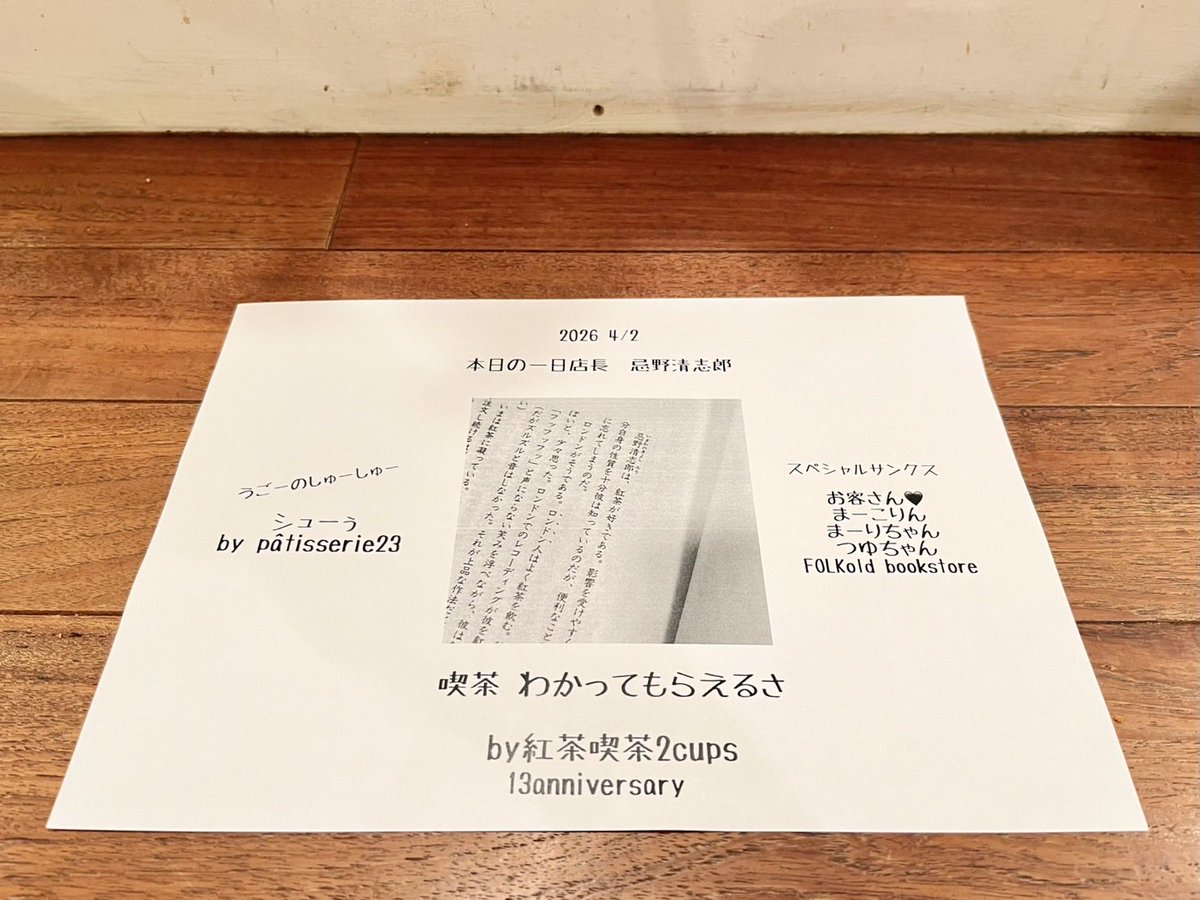 2026 4/2
本日の一日店長 忌野清志郎
うごーのしゅーしゅー
シューぅ
by pâtisserie23
いまわのきよしろう
忌野清志郎は、紅茶が好きである。影響を受けやすく
分自身の性質を十分彼は知っているのだが、便利なこと
に忘れてしまうのだ。
ロンドンがそうである。ロンドン人はよく紅茶を飲む。
ほいと、少々思った。ロンドンでのレコーディングが彼を紅
「フッフッフッ」と声にならない笑みを浮べながら、彼は
(だがズルズルと音はしなかった。それが上品な作法だ
い)
いまは紅茶に凝っている。
注文し続ける
スペシャルサンクス
お客さん🖤
まーこりん
まーりちゃん
つゆちゃん
FOLKold bookstore
喫茶 わかってもらえるさ
by紅茶喫茶2cups
13anniversary